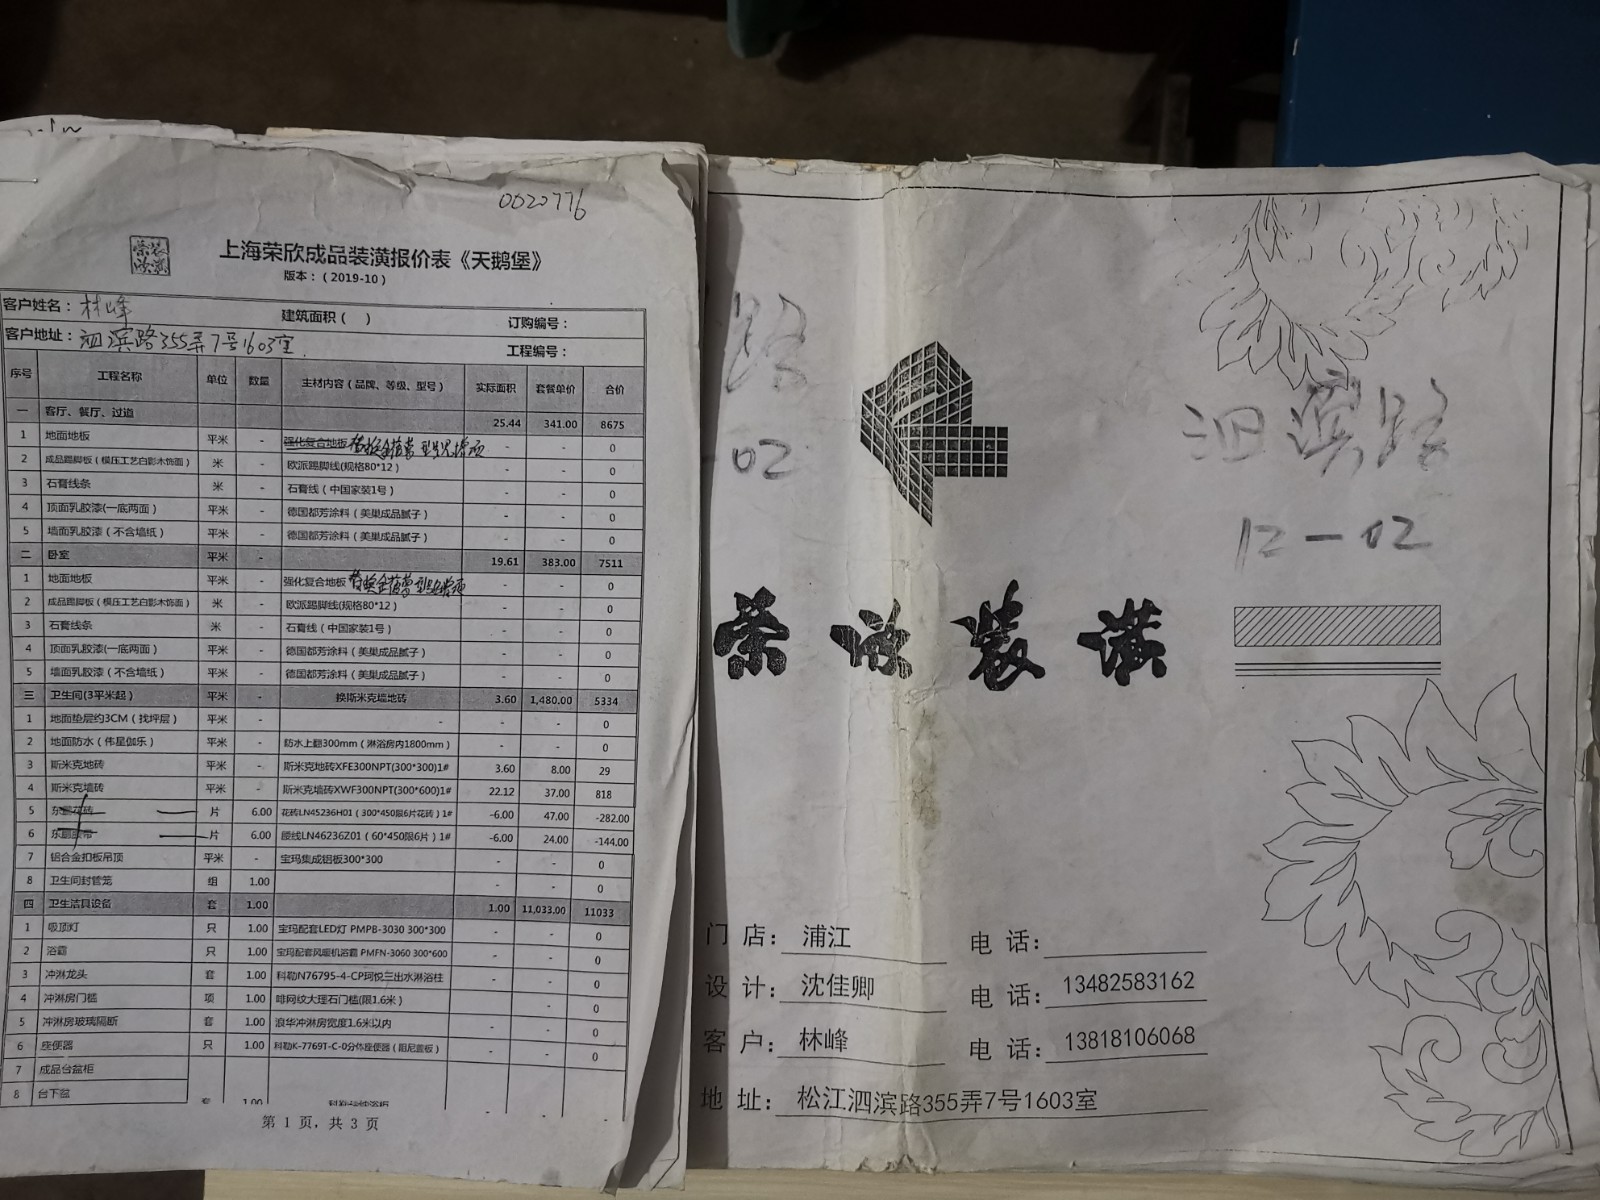 0020776
荣欣装潢
上海荣欣成品装潢报价表《天鹅堡》
版本：（2019-10）
客户姓名：林峰 建筑面积（ ） 订购编号：
客户地址：泗滨路355弄7号1603室 工程编号：
序号 工程名称 单位 数量 主材内容（品牌、等级、型号） 实际面积 套餐单价 合价
一 客厅、餐厅、过道 25.44 341.00 8675
1 地面地板 平米 - 强化复合地板 - - 0
2 成品踢脚板（模压工艺白影木饰面） 米 - 欧派踢脚线(规格80*12） - - 0
3 石膏线条 米 - 石膏线（中国家装1号） - - 0
4 顶面乳胶漆(一底两面） 平米 - 德国都芳涂料（美巢成品腻子） - - 0
5 墙面乳胶漆（不含墙纸） 平米 - 德国都芳涂料（美巢成品腻子） - - 0
二 卧室 平米 - 19.61 383.00 7511
1 地面地板 平米 - 强化复合地板 - - 0
2 成品踢脚板（模压工艺白影木饰面） 米 - 欧派踢脚线(规格80*12） - - 0
3 石膏线条 米 - 石膏线（中国家装1号） - - 0
4 顶面乳胶漆(一底两面） 平米 - 德国都芳涂料（美巢成品腻子） - - 0
5 墙面乳胶漆（不含墙纸） 平米 - 德国都芳涂料（美巢成品腻子） - - 0
三 卫生间(3平米起） 平米 - 换斯米克墙地砖 3.60 1,480.00 5334
1 地面垫层约3CM（找坪层） 平米 - - - - 0
2 地面防水（伟星伽乐） 平米 - 防水上翻300mm（淋浴房内1800mm） - - 0
3 斯米克地砖 平米 - 斯米克地砖XFE300NPT(300*300)1# 3.60 8.00 29
4 斯米克墙砖 平米 - 斯米克墙砖XWF300NPT(300*600)1# 22.12 37.00 818
5 东鹏花砖 片 6.00 花砖LN45236H01（300*450限6片花砖）1# -6.00 47.00 -282.00
6 东鹏腰带 片 6.00 腰线LN46236Z01（60*450限6片）1# -6.00 24.00 -144.00
7 铝合金扣板吊顶 平米 - 宝玛集成铝板300*300 - - 0
8 卫生间封管笼 组 1.00 - - 0
四 卫生洁具设备 套 1.00 1.00 11,033.00 11033
1 吸顶灯 只 1.00 宝玛配套LED灯 PMPB-3030 300*300 - - 0
2 浴霸 只 1.00 宝玛配套风暖机浴霸 PMFN-3060 300*600 - - 0
3 冲淋龙头 套 1.00 科勒N76795-4-CP珂悦三出水淋浴柱 - - 0
4 冲淋房门槛 项 1.00 啡网纹大理石门槛(限1.6米） - - 0
5 冲淋房玻璃隔断 套 1.00 浪华冲淋房宽度1.6米以内 - - 0
6 座便器 只 1.00 科勒K-7769T-C-0分体座便器（阻尼盖板） - - 0
7 成品台盆柜
8 台下盆
套 1.00
第 1 页，共 3 页
路
02
泗滨路
12-02
荣欣装潢
门 店： 浦江 电 话：
设 计： 沈佳卿 电 话： 13482583162
客 户： 林峰 电 话： 13818106068
地 址： 松江泗滨路355弄7号1603室